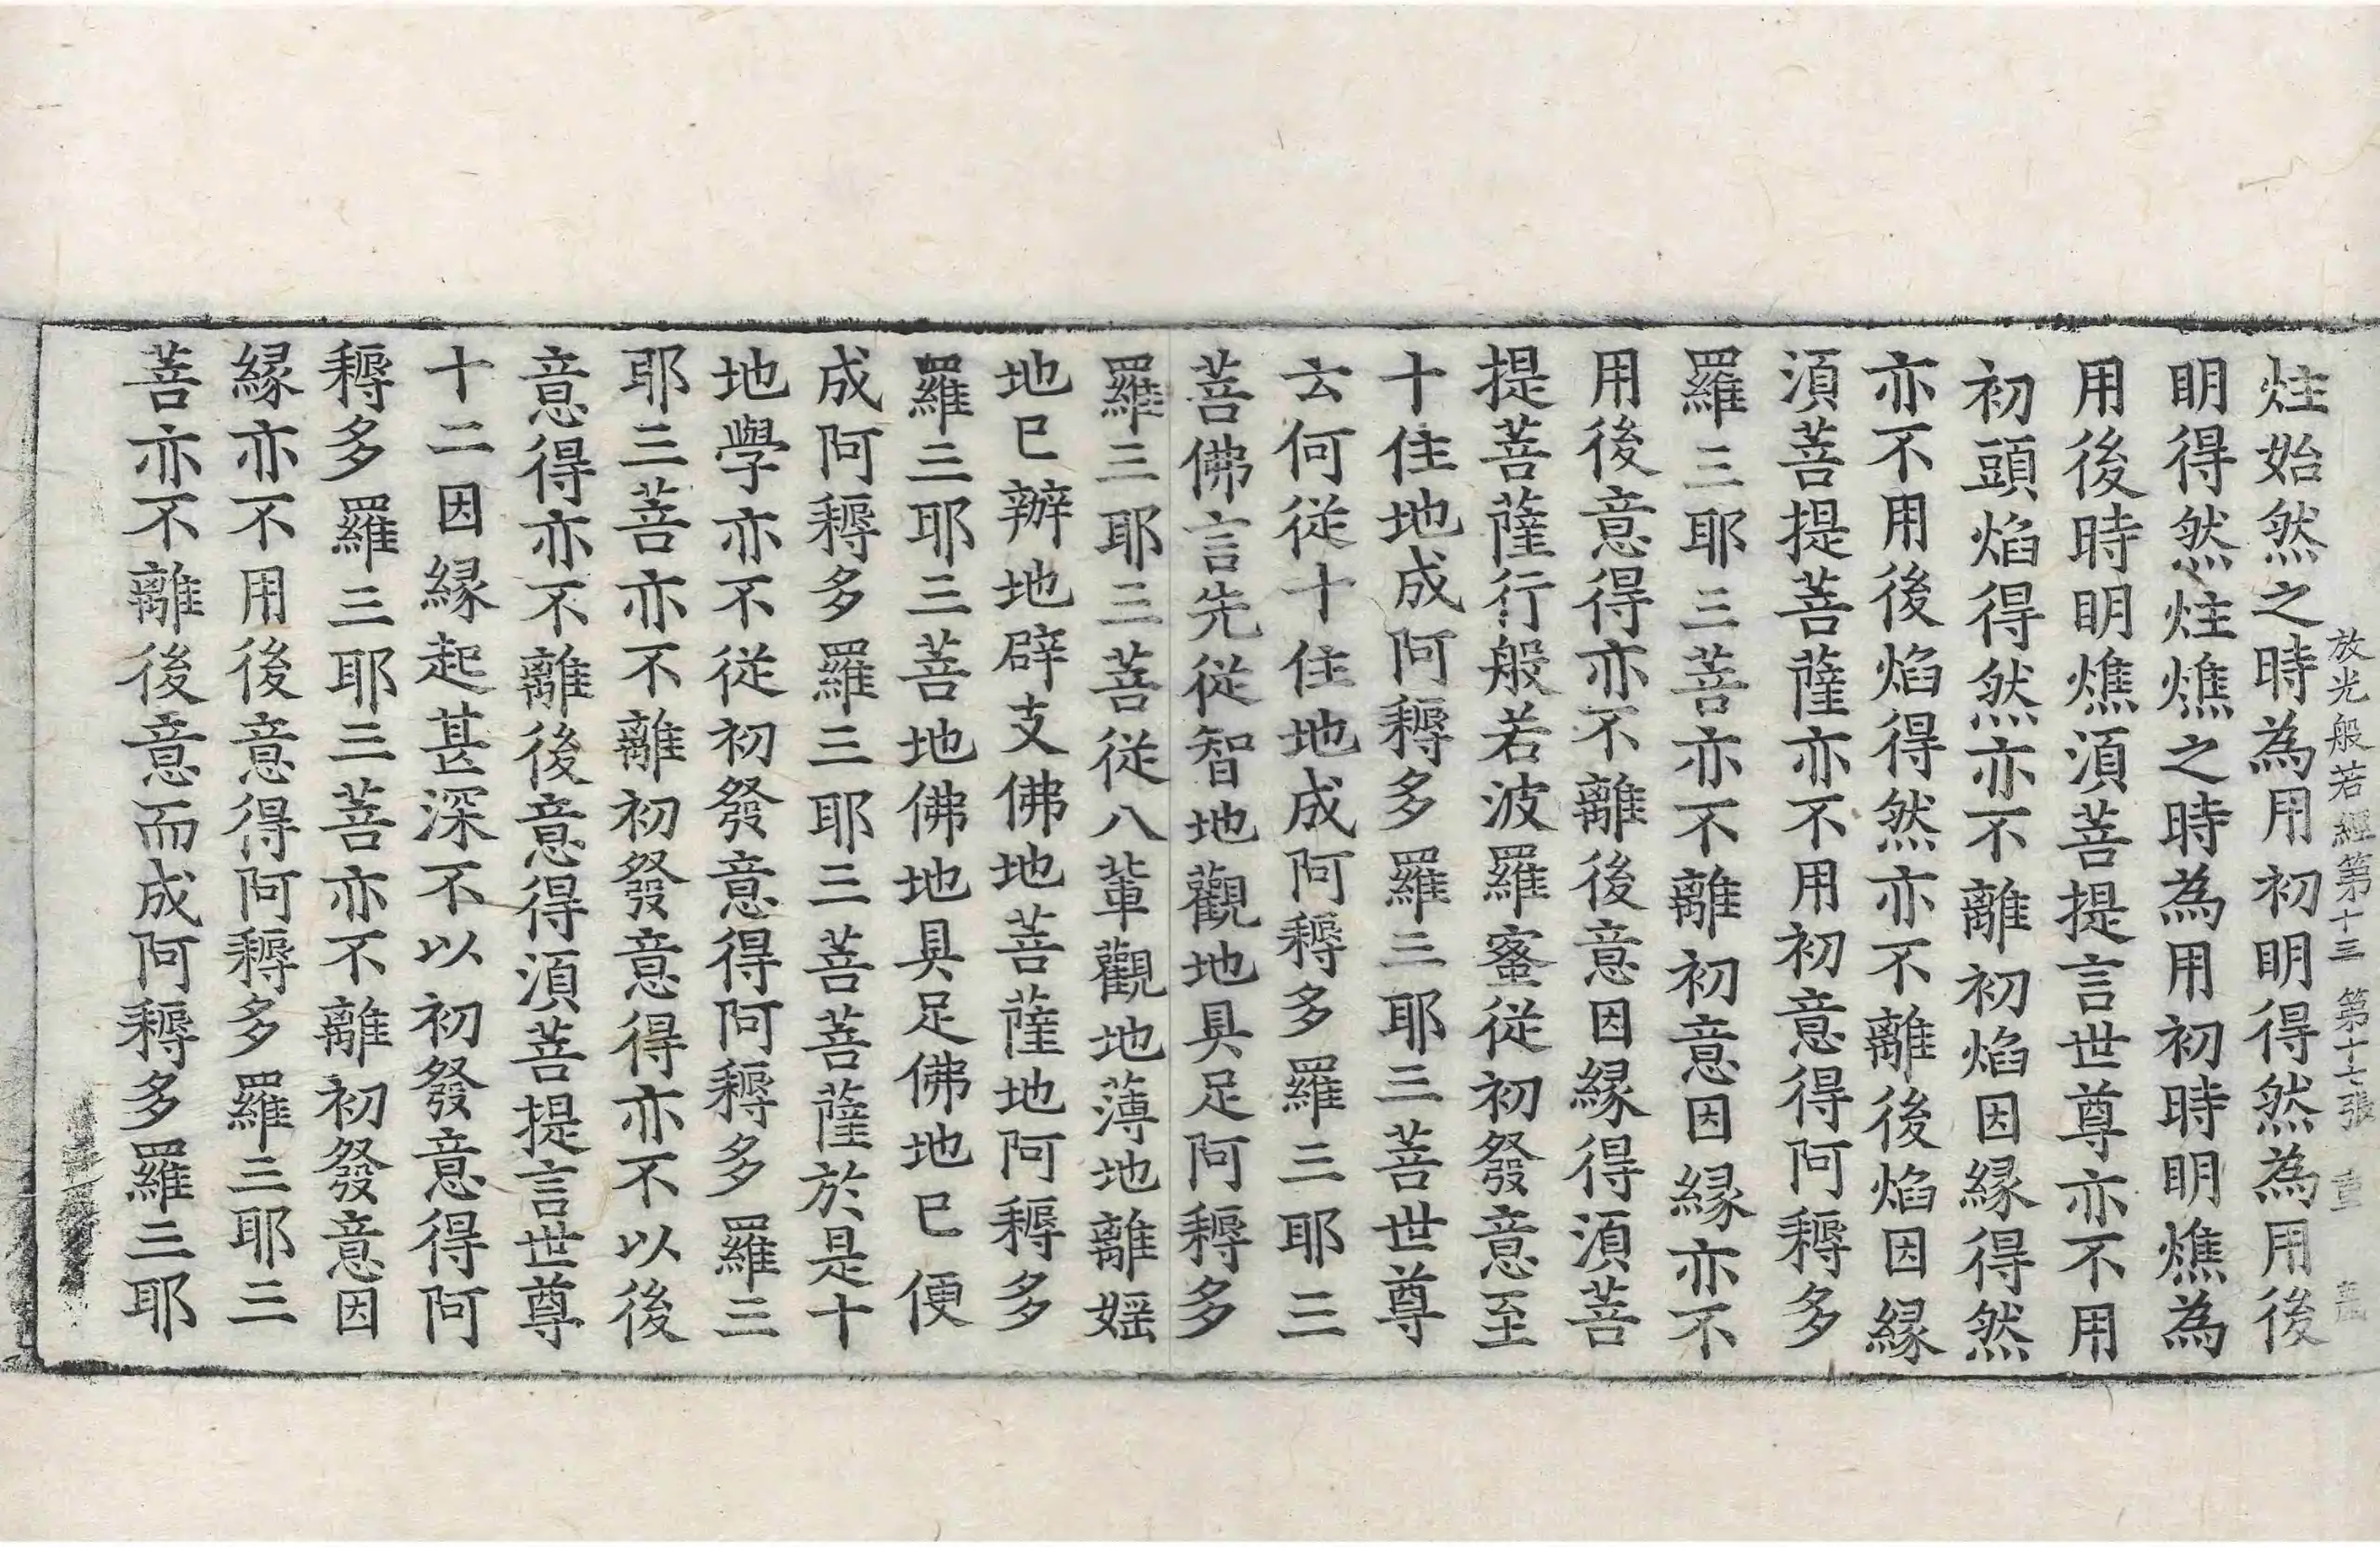 放光般若經第十三 第十七張 重
炷始然之時為用初明得然為用後
明得然炷燋之時為用初時明燋為
用後時明燋湏菩提言世尊亦不用
初頭焰得然亦不離初焰因緣得然
亦不用後焰得然亦不離後焰因緣
湏菩提菩薩亦不用初意得阿耨多
羅三耶三菩亦不離初意因緣亦不
用後意得亦不離後意因緣得湏菩
提菩薩行般若波羅蜜從初發意至
十住地成阿耨多羅三耶三菩世尊
云何從十住地成阿耨多羅三耶三
菩佛言先從智地觀地具足阿耨多
羅三耶三菩從八輩觀地薄地離婬
地已辦地辟支佛地菩薩地阿耨多
羅三耶三菩地佛地具足佛地已便
成阿耨多羅三耶三菩菩薩於是十
地學亦不從初發意得阿耨多羅三
耶三菩亦不離初發意得亦不以後
意得亦不離後意得湏菩提言世尊
十二因緣起甚深不以初發意得阿
耨多羅三耶三菩亦不離初發意因
緣亦不用後意得阿耨多羅三耶三
菩亦不離後意而成阿耨多羅三耶